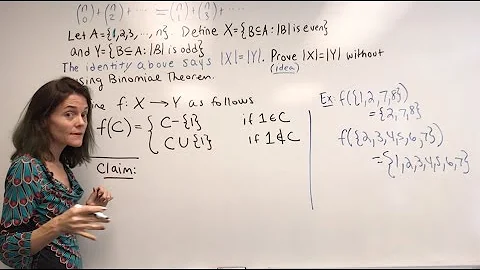 (n 0) + (n 2) + ⋯ = (n 1) + (n 3) + ⋯
Let A={1,2,3,…,n}. Define X={B⊆A: |B| is even}
and Y={B⊆A: |B| is odd}
The identity above says |X|=|Y|. Prove |X|=|Y| without
(idea)
using Binomial Theorem.
f: X→Y as follows
f(C) = { C-{1} if 1∈C
C∪{1} if 1∉C
Claim:
Ex: f({1,2,7,8})
={2,7,8}
f({2,3,4,5,6,7})
={1,2,3,4,5,6,7}